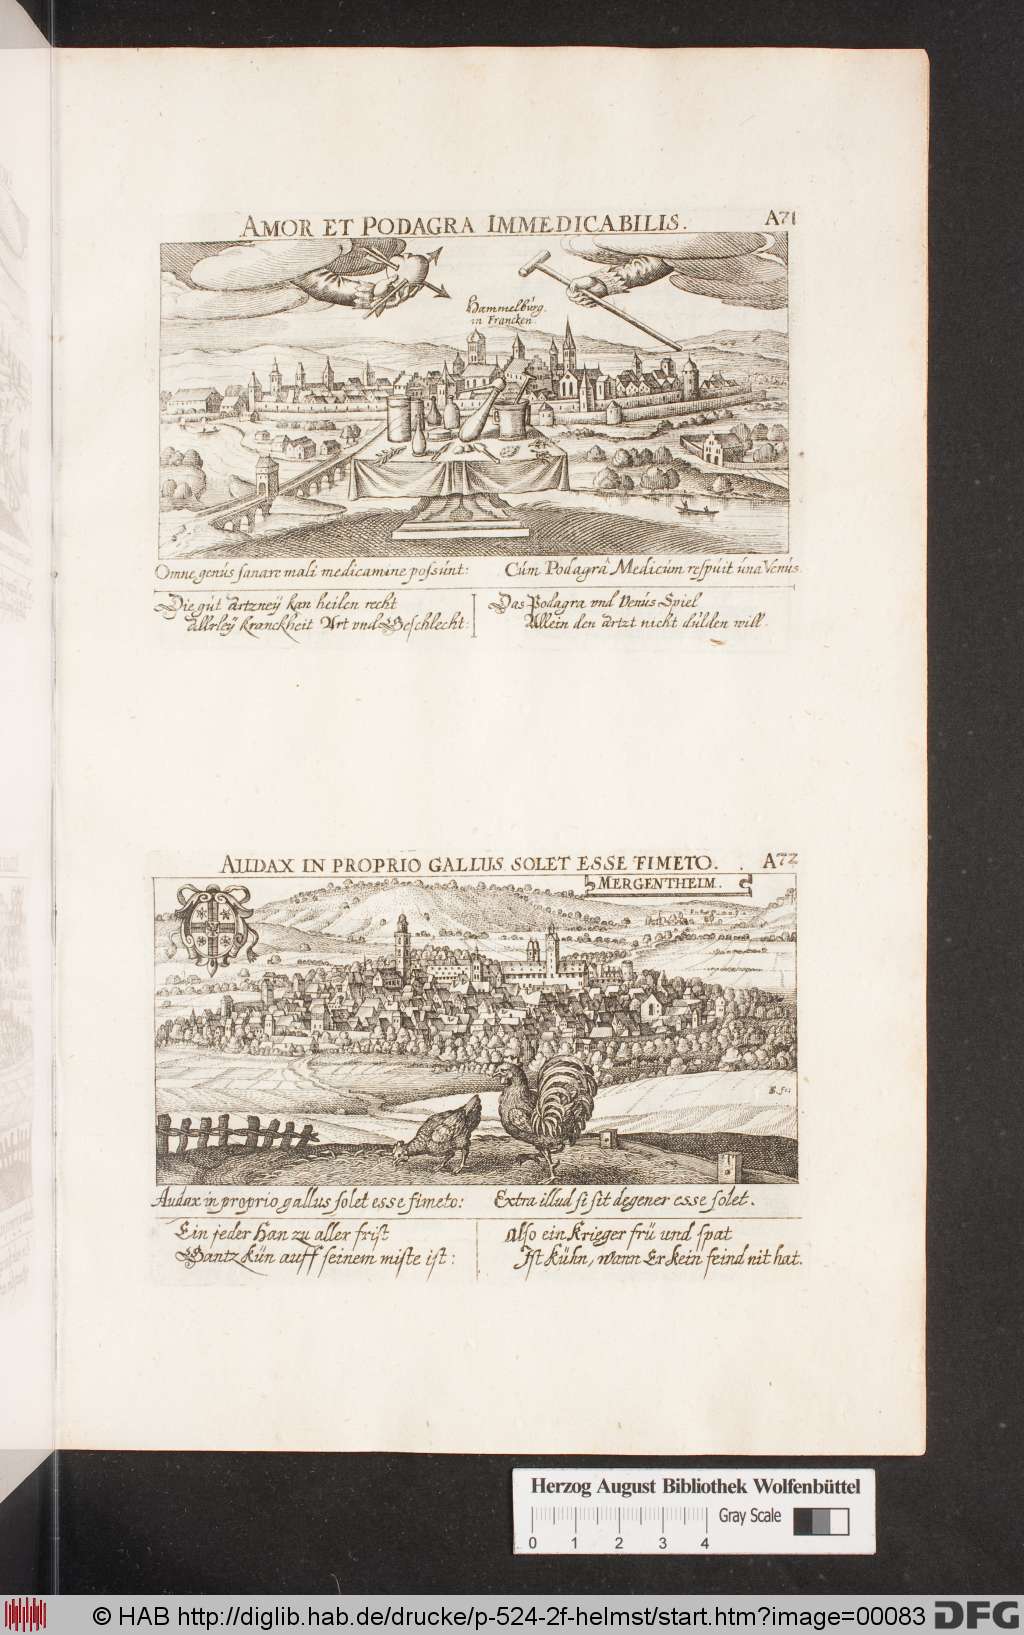 AMOR ET PODAGRA IMMEDICABILIS.
A71
Hammelbúrg.
in Francken.
Omne genús sanare mali medicamine possúnt:
Cúm Podagrâ Medicúm respúit úna Venús.
Die gút artzneÿ kan heilen recht
allrleÿ kranckheit Art vnd Geschlecht:
Das Podagra vnd Venús Spiel
Allein den artzt nicht dúlden will.
AUDAX IN PROPRIO GALLUS SOLET ESSE FIMETO.
A72
MERGENTHEIM.
Audax in proprio gallus solet esse fimeto:
Extra illud si sit degener esse solet.
Ein jeder Han zu aller frist
Gantz kün auff seinem miste ist:
Also ein Krieger frü und spat
Ist kühn, wann Er kein feind nit hat.
Herzog August Bibliothek Wolfenbüttel
Gray Scale
0 1 2 3 4
© HAB http://diglib.hab.de/drucke/p-524-2f-helmst/start.htm?image=00083
DFG